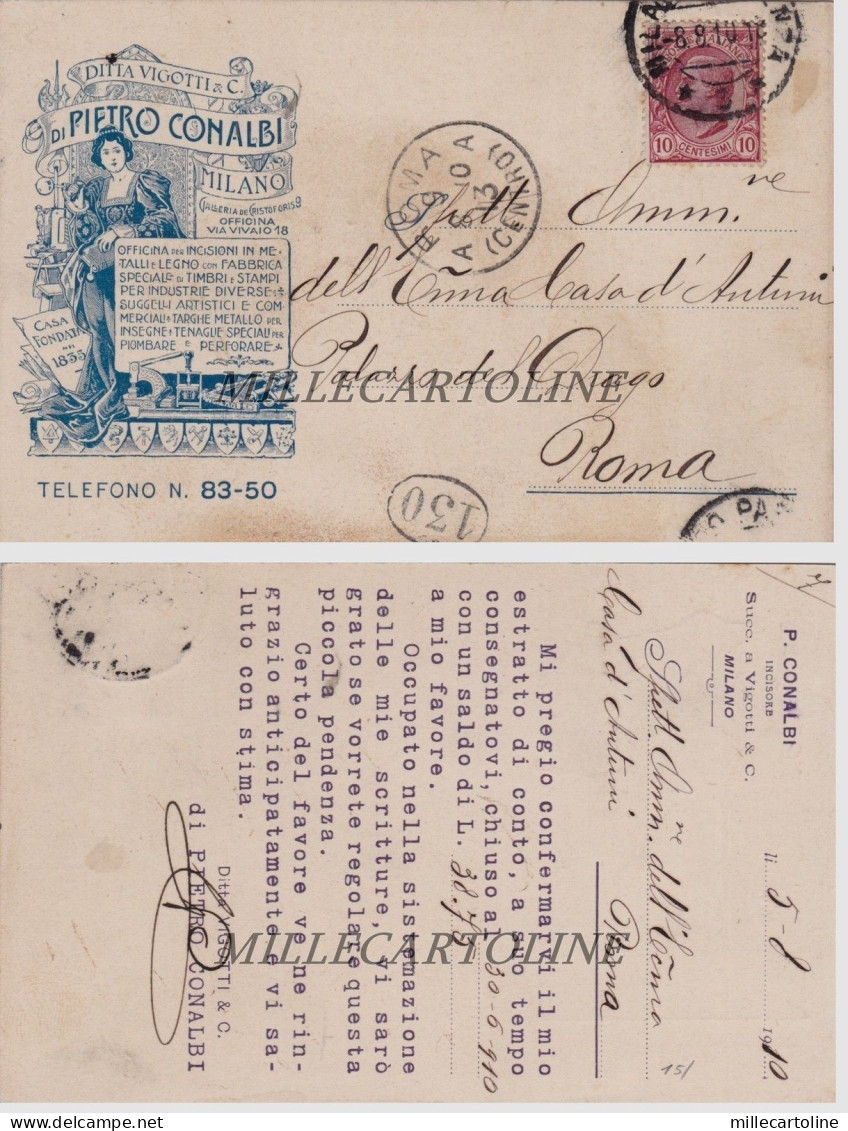 DITTA VIGOTTI & C.
DI PIETRO CONALBI
MILANO
GALLERIA DE CRISTOFORIS
OFFICINA
VIA VIVAIO 18
OFFICINA PER INCISIONI IN ME-
TALLI E LEGNO CON FABBRICA
SPECIALE DI TIMBRI E STAMPI
PER INDUSTRIE DIVERSE
SUGGELLI ARTISTICI E COM
MERCIALI TARGHE METALLO PER
INSEGNE TENAGLIE SPECIALI PER
PIOMBARE E PERFORARE
CASA
FONDATA
NEL
1835
TELEFONO N. 83-50
MILA
-8.8.10
10 CENTESIMI 10
ROMA
(CENTRO)
130
Spett Amm.ne
dell'Ecc̃ma Casa d'Antuni
Palazzo del Drago
Roma
MILLECARTOLINE
P. CONALBI
INCISORE
Succ. a Vigotti & C.
MILANO
li 5-8 1910
Spett Amm.ne dell'Ecc̃ma
Casa d'Antuni Roma
Mi pregio confermarvi il mio
estratto di conto, a suo tempo
consegnatovi, chiuso al 30-6-910
con un saldo di L. 38.75
a mio favore.
Occupato nella sistemazione
delle mie scritture, vi sarò
grato se vorrete regolare questa
piccola pendenza.
Certo del favore ve ne rin-
grazio anticipatamente e vi sa-
luto con stima.
Ditta VIGOTTI & C.
di PIETRO CONALBI
15/
MILLECARTOLINE
delcampe.net
millecartoline